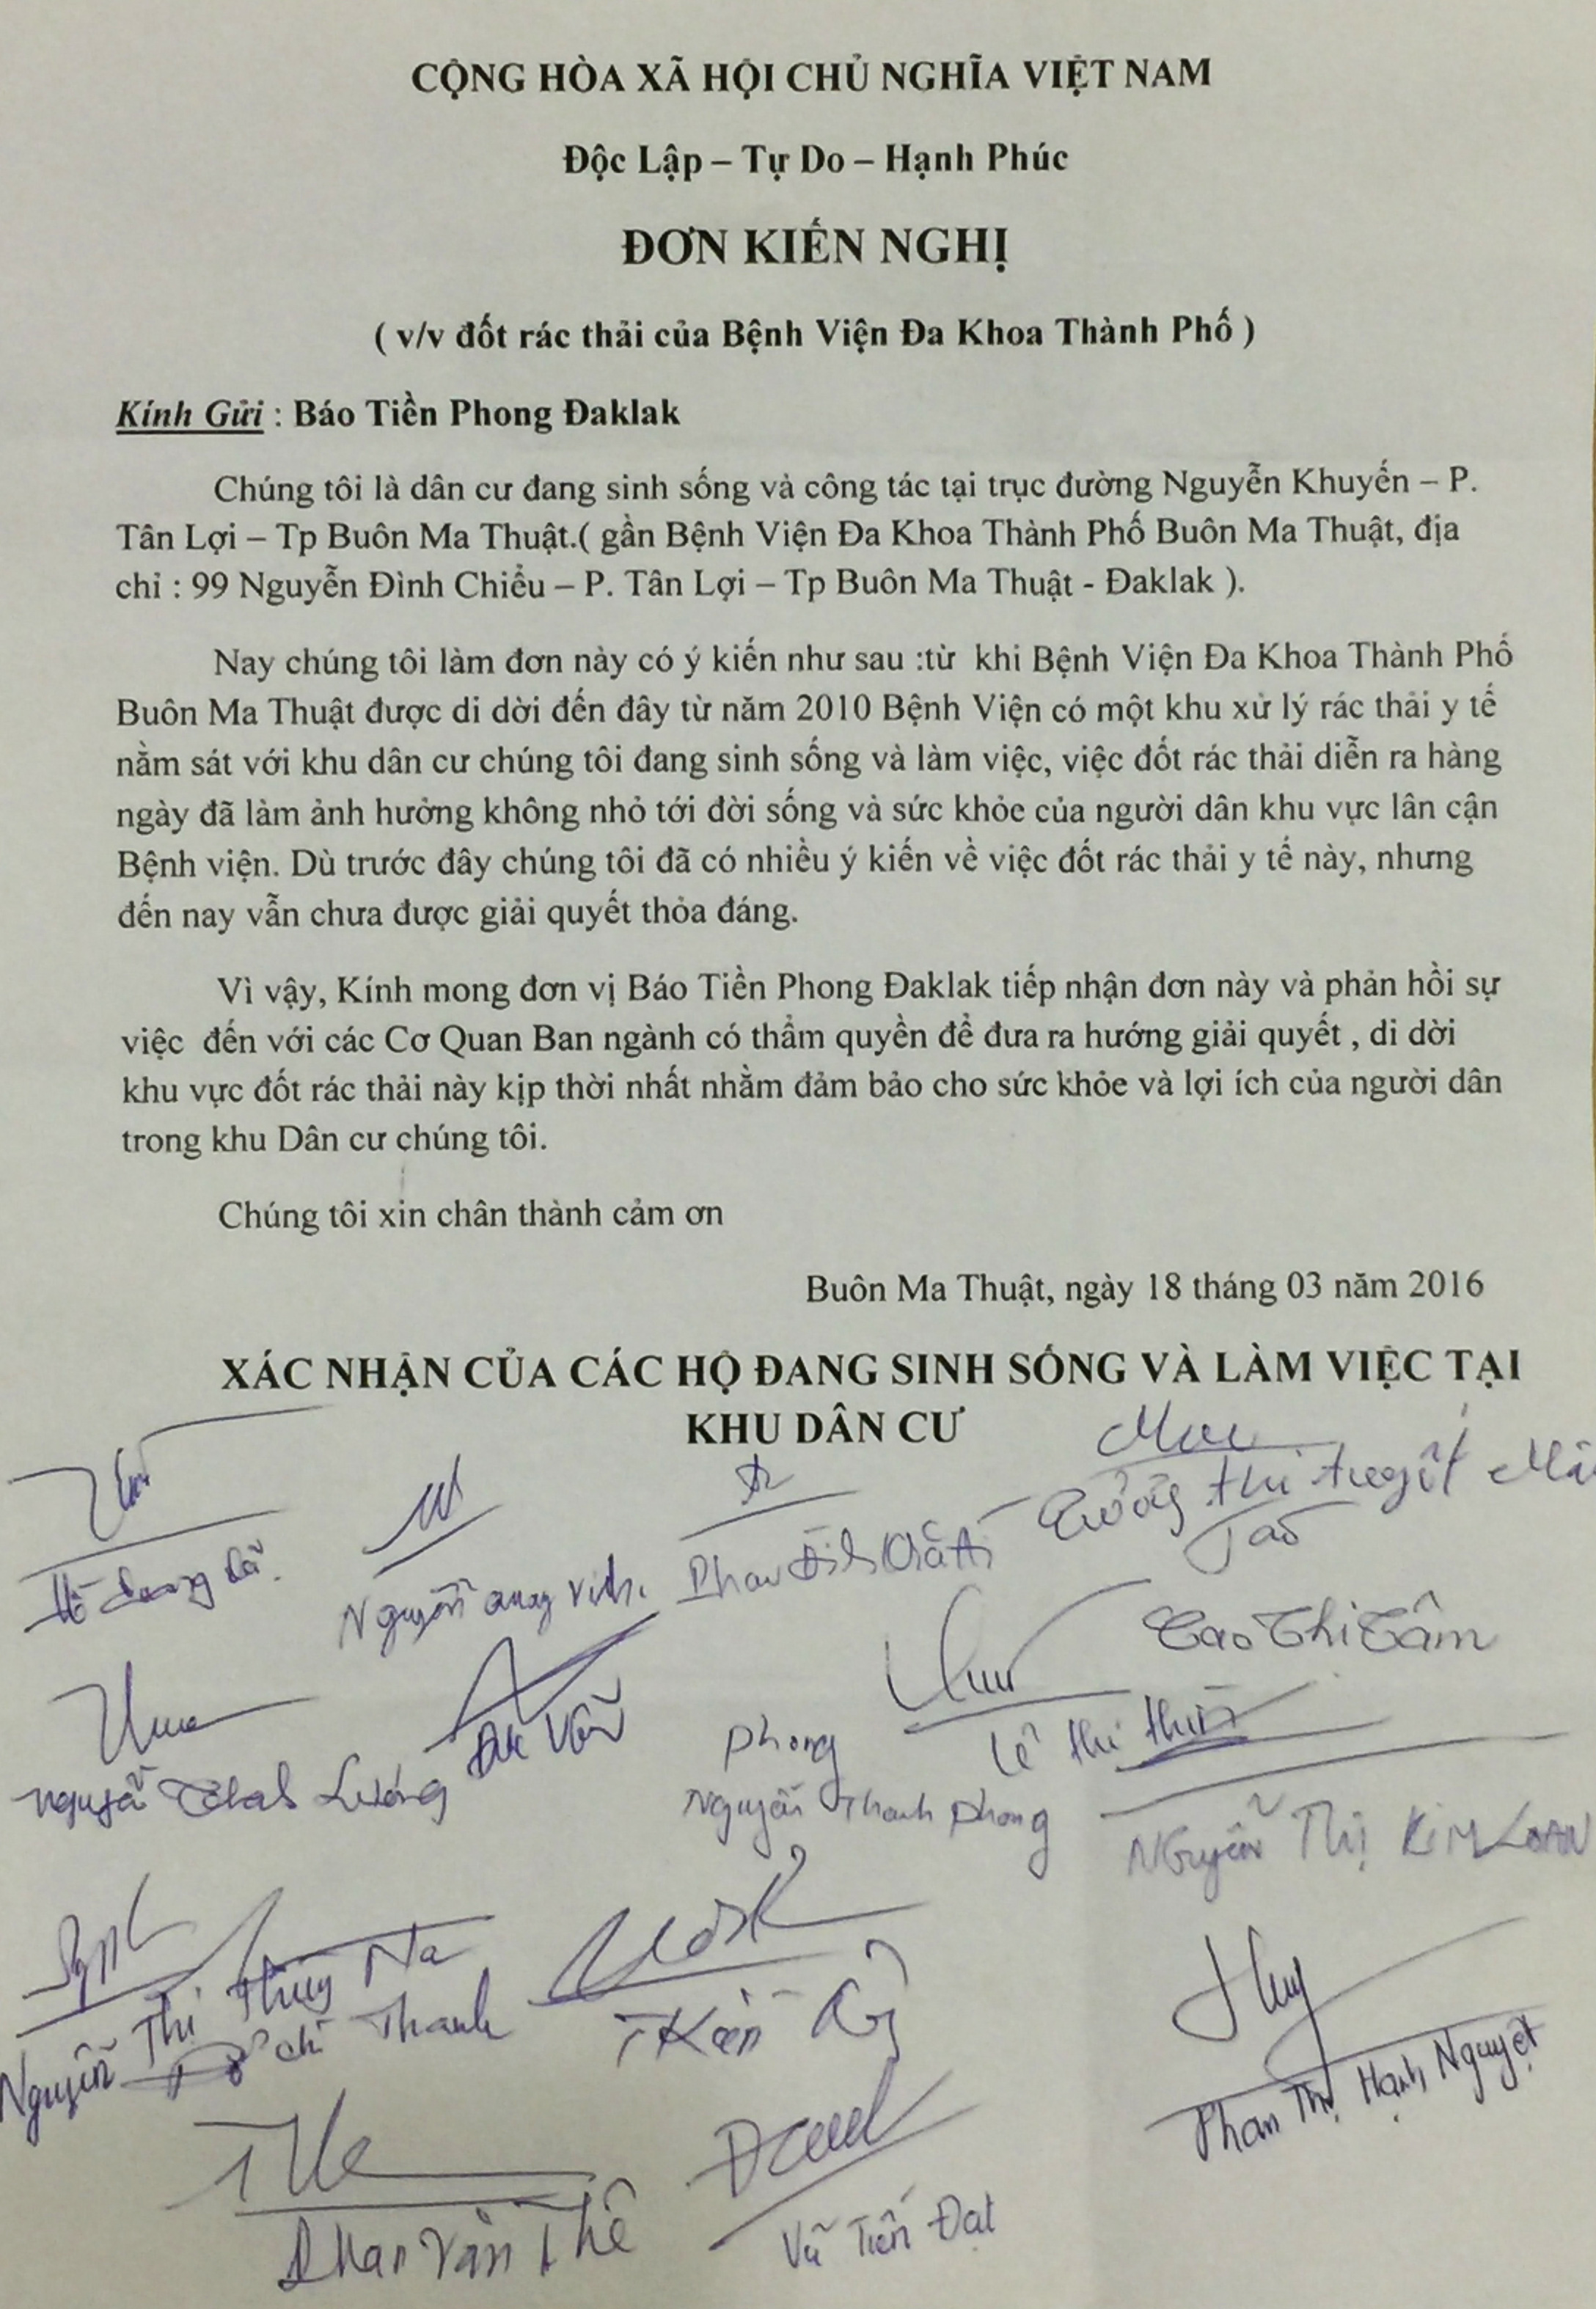 CỘNG HÒA XÃ HỘI CHỦ NGHĨA VIỆT NAM
Độc Lập – Tự Do – Hạnh Phúc
ĐƠN KIẾN NGHỊ
( v/v đốt rác thải của Bệnh Viện Đa Khoa Thành Phố )
Kính Gửi : Báo Tiền Phong Đaklak
Chúng tôi là dân cư đang sinh sống và công tác tại trục đường Nguyễn Khuyến – P.
Tân Lợi – Tp Buôn Ma Thuật.( gần Bệnh Viện Đa Khoa Thành Phố Buôn Ma Thuật, địa
chỉ : 99 Nguyễn Đình Chiểu – P. Tân Lợi – Tp Buôn Ma Thuật - Đaklak ).
Nay chúng tôi làm đơn này có ý kiến như sau :từ khi Bệnh Viện Đa Khoa Thành Phố
Buôn Ma Thuật được di dời đến đây từ năm 2010 Bệnh Viện có một khu xử lý rác thải y tế
nằm sát với khu dân cư chúng tôi đang sinh sống và làm việc, việc đốt rác thải diễn ra hàng
ngày đã làm ảnh hưởng không nhỏ tới đời sống và sức khỏe của người dân khu vực lân cận
Bệnh viện. Dù trước đây chúng tôi đã có nhiều ý kiến về việc đốt rác thải y tế này, nhưng
đến nay vẫn chưa được giải quyết thỏa đáng.
Vì vậy, Kính mong đơn vị Báo Tiền Phong Đaklak tiếp nhận đơn này và phản hồi sự
việc đến với các Cơ Quan Ban ngành có thẩm quyền để đưa ra hướng giải quyết , di dời
khu vực đốt rác thải này kịp thời nhất nhằm đảm bảo cho sức khỏe và lợi ích của người dân
trong khu Dân cư chúng tôi.
Chúng tôi xin chân thành cảm ơn
Buôn Ma Thuật, ngày 18 tháng 03 năm 2016
XÁC NHẬN CỦA CÁC HỘ ĐANG SINH SỐNG VÀ LÀM VIỆC TẠI
KHU DÂN CƯ
thị tuyết
Nguyễn Quang Vinh.
Phan Đình
Cao Thị Tâm
Lê thị
Phong
Nguyễn Thanh Phong
Nguyễn
Nguyễn Thị KIM LOAN
Nguyễn Thị Thúy Na
Chí Thanh
Phan Thị Hạnh Nguyệt
Phan Văn Thê
Vũ Tiến Đạt